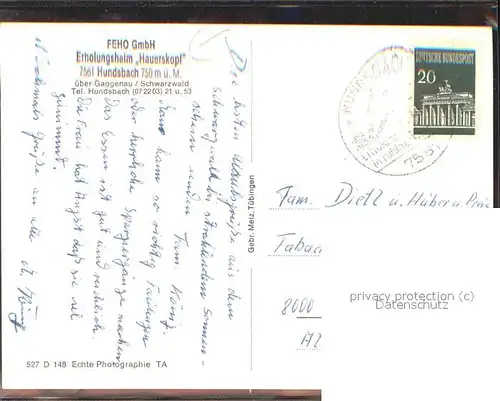 FEHO GmbH
Erholungsheim „Hauerskopf"
7561 Hundsbach 750 m ü. M.
über Gaggenau / Schwarzwald
Tel. Hundsbach (0 72 203) 21 u. 53
Die besten Urlaubsgrüße aus dem
Schwarzwald bei strahlendem Sonnen-
schein senden Fam. König.
Man kann so richtig faulenzen
oder herrliche Spaziergänge machen
Das Essen ist gut und reichlich.
Die Frau hat Angst daß sie viel
zunimmt.
Nochmals Grüße an alle
Gebr. Metz, Tübingen
527 D 148 Echte Photographie TA
DEUTSCHE BUNDESPOST
20
HUNDSBACH
7561
Fam. Dietz u. Huber u.
Tabac
8000
privacy protection (c)
Datenschutz